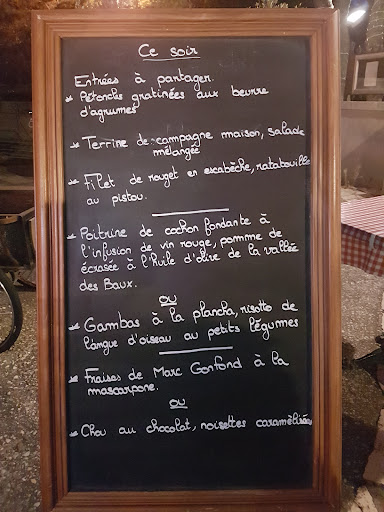 Ce soir
Entrées à partager.
* Pétoncles gratinées aux beurre
d'agrumes
* Terrine de campagne maison, salade
mélangée
* Filet de rouget en escabèche, ratatouille
au pistou.
* Poitrine de cochon fondante à
l'infusion de vin rouge, pomme de
écrasée à l'huile d'olive de la vallée
des Baux.
ou
* Gambas à la plancha, risotto de
langue d'oiseau au petits légumes
* Fraises de Marc Gonfond à la
mascarpone.
ou
* Chou au chocolat, noisettes caramélisées